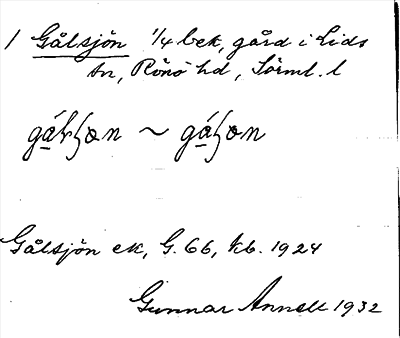 1 Gålsjön 1/4 bek, gård i Lids
sn, Rönö hd, Sörml. l
Gålsjön ek, G. 66, kb. 1924
Gunnar Annell 1932